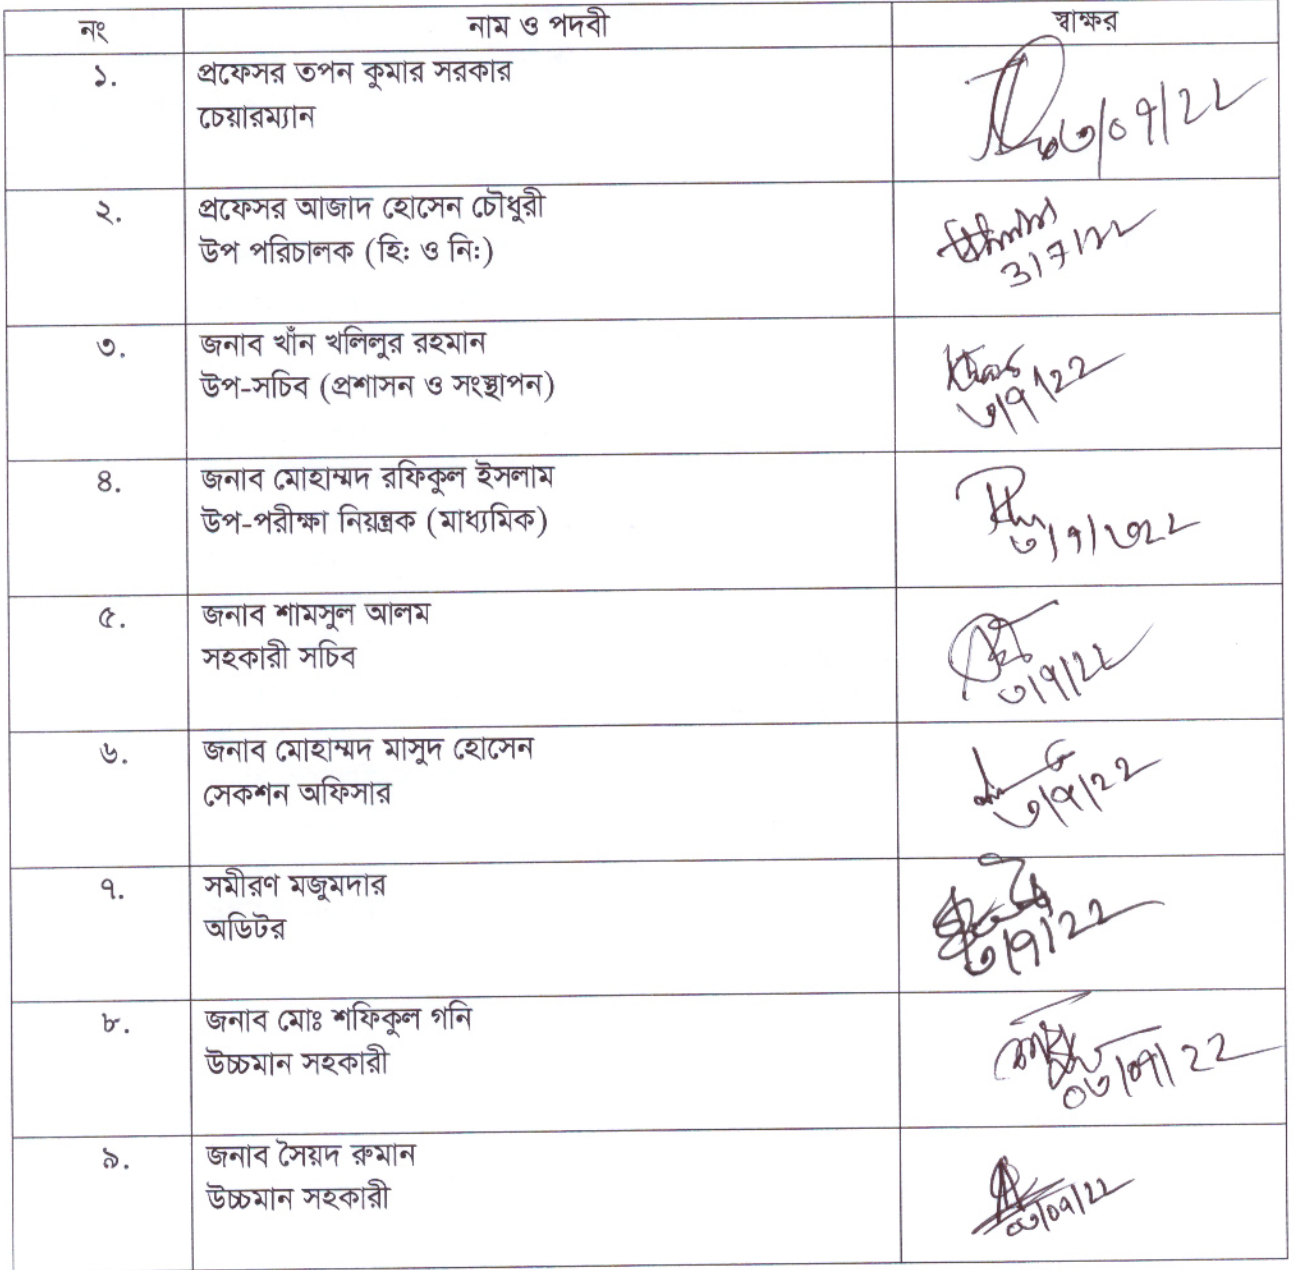 নং নাম ও পদবী স্বাক্ষর
১. প্রফেসর তপন কুমার সরকার
চেয়ারম্যান
৩/০৭/২২
২. প্রফেসর আজাদ হোসেন চৌধুরী
উপ পরিচালক (হি: ও নি:)
3/7/22
৩. জনাব খাঁন খলিলুর রহমান
উপ-সচিব (প্রশাসন ও সংস্থাপন)
৩/৭/২২
৪. জনাব মোহাম্মদ রফিকুল ইসলাম
উপ-পরীক্ষা নিয়ন্ত্রক (মাধ্যমিক)
৫. জনাব শামসুল আলম
সহকারী সচিব
৩/৭/২২
৬. জনাব মোহাম্মদ মাসুদ হোসেন
সেকশন অফিসার
৩/৭/২২
৭. সমীরণ মজুমদার
অডিটর
৩/৭/২২
৮. জনাব মোঃ শফিকুল গনি
উচ্চমান সহকারী
০৩/০৭/২২
৯. জনাব সৈয়দ রুমান
উচ্চমান সহকারী
০৩/০৭/২২